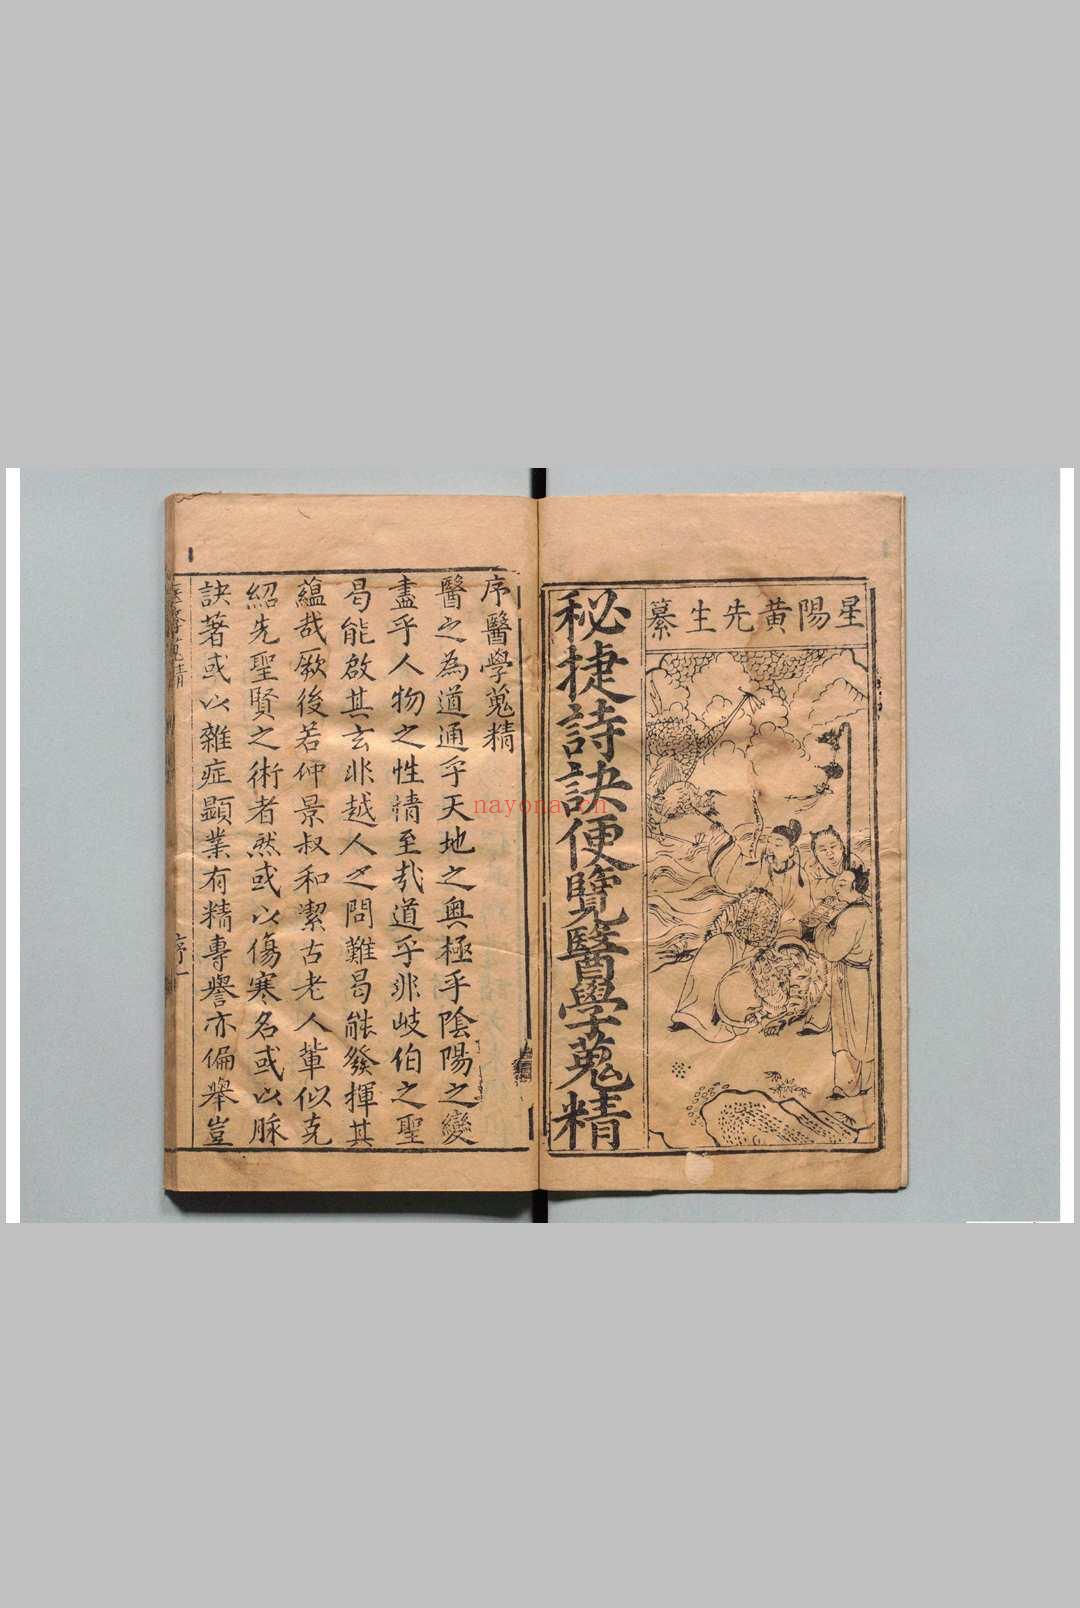 星陽黃先生纂
秘捷詩訣便覽醫學蒐精
序醫學蒐精
醫之為道通乎天地之奥極乎陰陽之變
盡乎人物之性情至哉道乎非岐伯之聖
曷能啟其玄非越人之問難曷能發揮其
蘊哉厥後若仲景叔和潔古老人軰似克
紹先聖賢之術者然或以傷寒名或以脉
訣著或以雜症顯業有精專譽亦偏舉豈
序一
nayona.cn